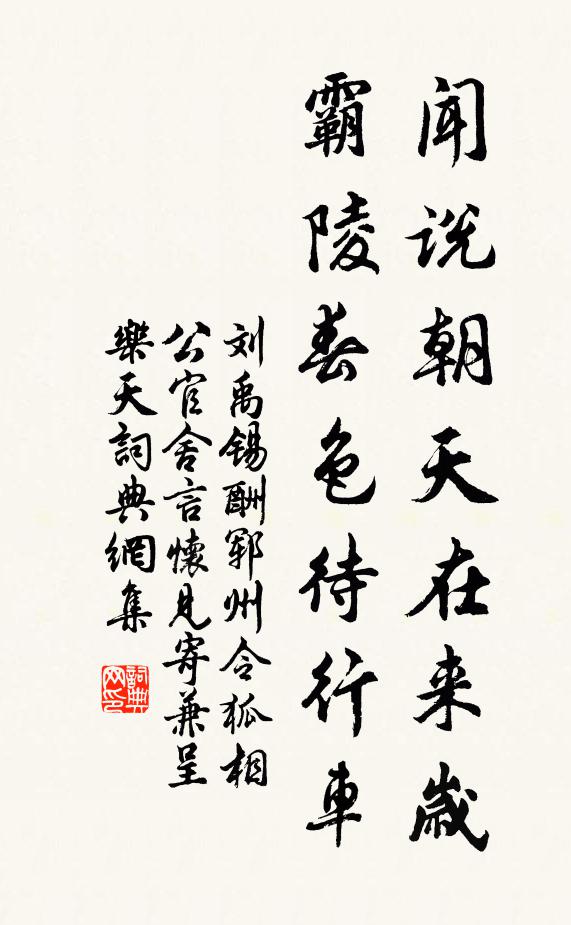 闻说朝天在来歲
霸陵春色待行車
刘禹锡酬郓州令狐相
公官舍言懷見寄兼呈
樂天詞典網集
詞典
网印